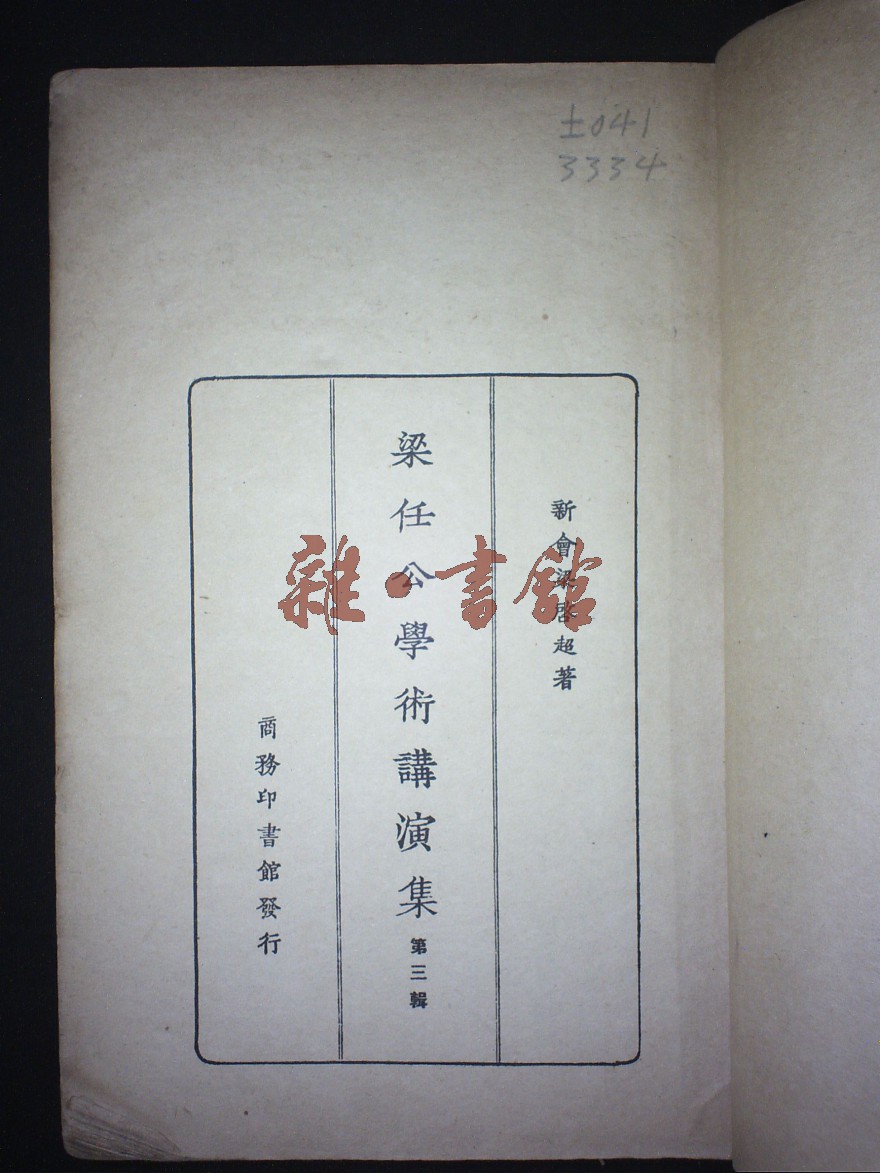 ±041
3334
新會梁啓超著
梁任公學術講演集 第三輯
商務印書館發行
雜·書館